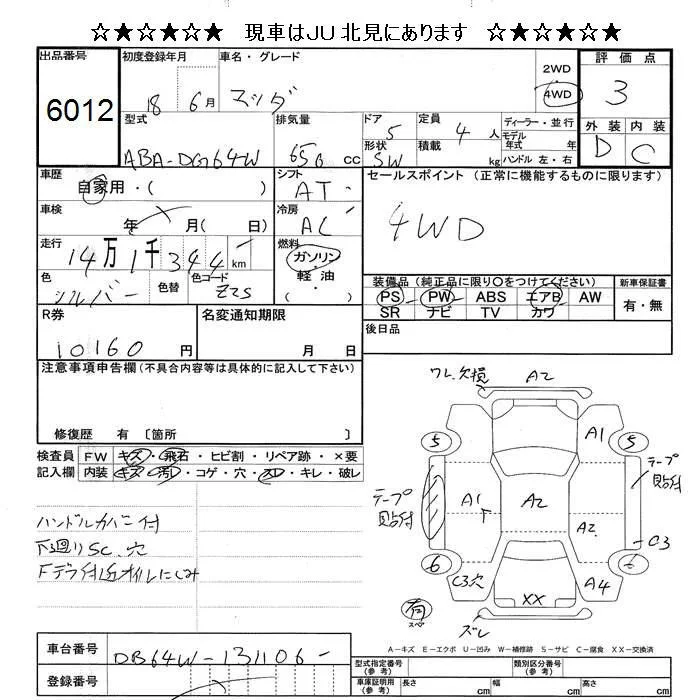 ☆★☆★☆★ 現車はJU 北見にあります ☆★☆★☆★
出品番号 初度登録年月 車名・グレード 2WD 評価点
6012 18 6月 マツダ 4WD 3
型式 排気量 ドア 定員 ディーラー・並行 外装 内装
5 4人 モデル年式 年
ABA-DG64W 656 cc 形状 積載 kg ハンドル 左・右 D C
SW
車歴 自家用・( ) シフト AT セールスポイント (正常に機能するものに限ります)
車検 年 月( 日) 冷房 AC 4WD
走行 14万1千344 km 燃料 ガソリン・軽油・( )
色 シルバー 色替 色コード Z2S 装備品 (純正品に限り○をつけてください) 新車保証書
PS PW ABS エアB AW 有・無
SR ナビ TV カワ
R券 10160円 名変通知期限 月 日 後日品
注意事項申告欄 (不具合内容等は具体的に記入して下さい)
修復歴 有 〔箇所 〕
検査員 FW キズ・飛石・ヒビ割・リペア跡・×要
記入欄 内装 キズ・汚レ・コゲ・穴・スレ・キレ・破レ
ワレ、欠損 A2
5 A1 5
テープ貼付 A1 A2 A2 テープ貼付
C3
6 C3欠 A4 6
XX
有 スペア ズレ
ハンドルカバー付
下廻りSC、穴
Fデフ付近オイルにじみ
A−キズ E−エクボ U−凹み W−補修跡 S−サビ C−腐食 XX−交換済
車台番号 DG64W-131106
登録番号
型式指定番号 (参考) 類別区分番号 (参考)
車庫証明用 (参考) 長さ cm 幅 cm 高さ cm